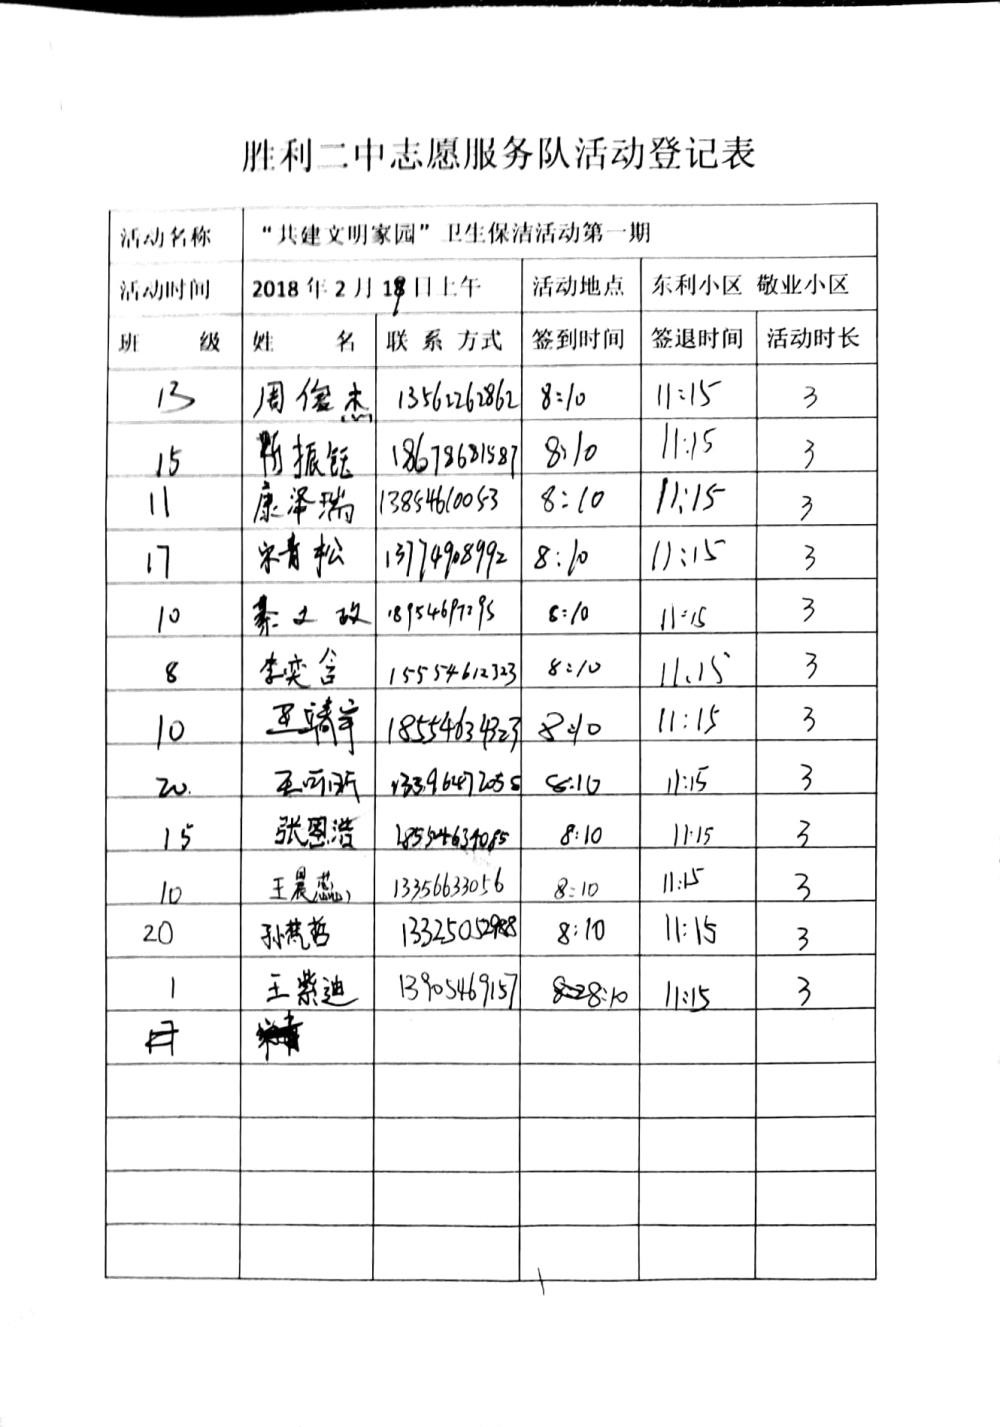 胜利二中志愿服务队活动登记表
活动名称 “共建文明家园”卫生保洁活动第一期
活动时间 2018年2月19日上午 活动地点 东利小区 敬业小区
班 级 姓 名 联 系 方式 签到时间 签退时间 活动时长
13 周俊杰 13562262862 8:10 11:15 3
15 振钰 18678681587 8:10 11:15 3
11 康泽瑞 13854610053 8:10 11:15 3
17 宋青松 13774908992 8:10 11:15 3
10 18954697295 8:10 11:15 3
8 李奕含 15554612323 8:10 11:15 3
10 王靖宇 18554634323 8:10 11:15 3
20. 王 13396472058 8:10 11:15 3
15 张恩浩 18554634085 8:10 11:15 3
10 王晨蕊 13356633056 8:10 11:15 3
20 孙梵哲 13325052988 8:10 11:15 3
1 王紫迪 13905469157 8:10 11:15 3